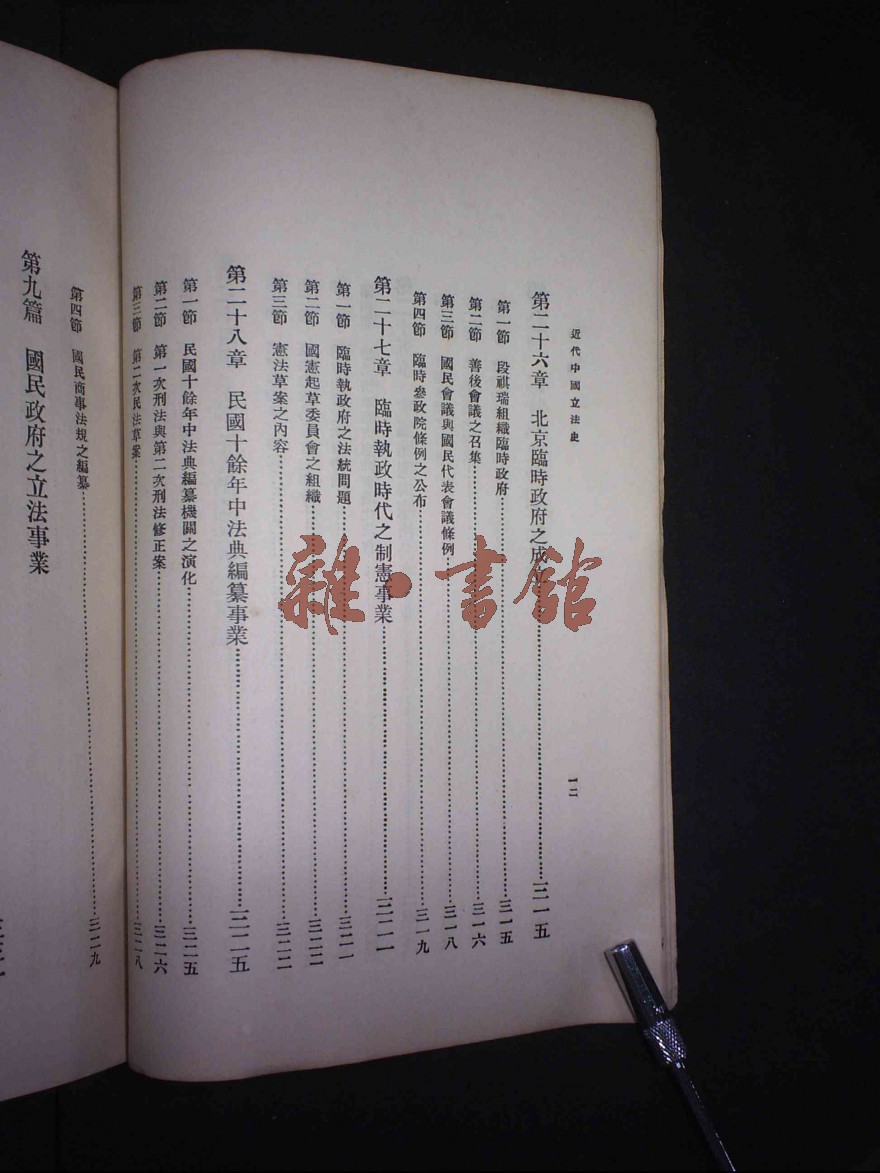 近代中國立法史
一二
第二十六章 北京臨時政府之成立……三一五
第一節 段祺瑞組織臨時政府……三一五
第二節 善後會議之召集……三一六
第三節 國民會議與國民代表會議條例……三一八
第四節 臨時參政院條例之公布……三一九
第二十七章 臨時執政時代之制憲事業……三二一
第一節 臨時執政府之法統問題……三二一
第二節 國憲起草委員會之組織……三二二
第三節 憲法草案之內容……三二二
第二十八章 民國十餘年中法典編纂事業……三二五
第一節 民國十餘年中法典編纂機關之演化……三二五
第二節 第一次刑法與第二次刑法修正案……三二六
第三節 第二次民法草案……三二八
第四節 國民商事法規之編纂……三二九
第九篇 國民政府之立法事業
雜·書館